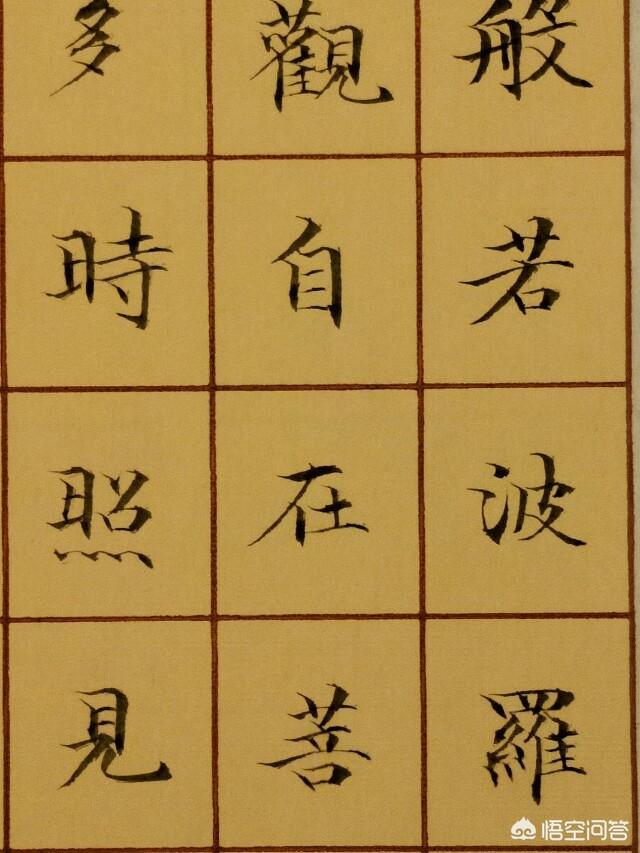 般若波羅
觀自在菩
多時照見
悟空问答